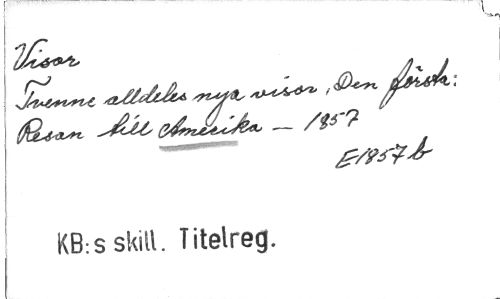 Visor
Tvenne alldeles nya visor, Den första:
Resan till Amerika — 1857
E1857b
KB:s skill. Titelreg.